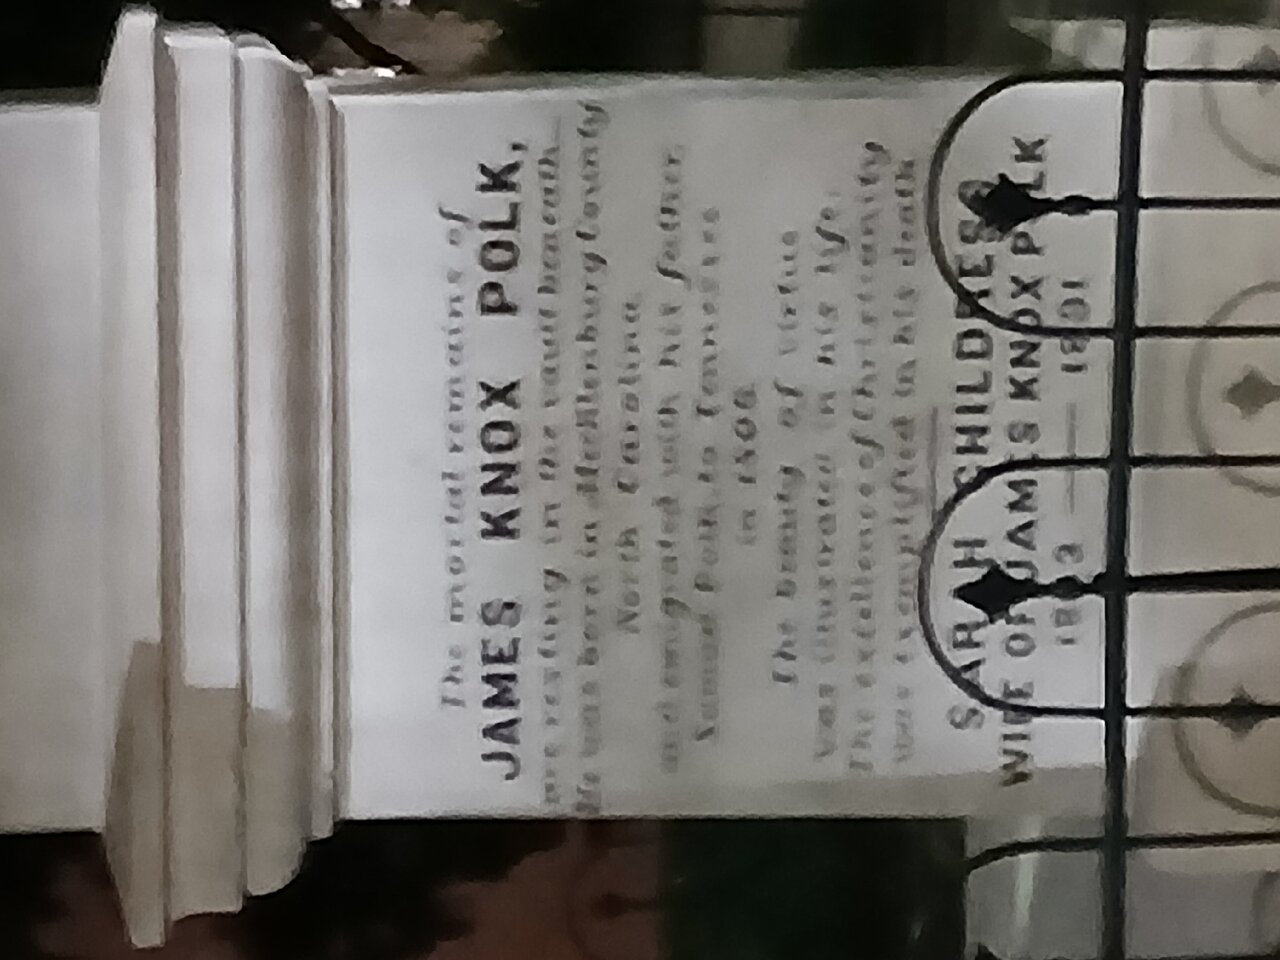 The mortal remains of
JAMES KNOX POLK,
are resting in the vault beneath
He was born in Mecklenburg County
North Carolina
and emigrated with his father,
Samuel Polk, to Tennessee
in 1806
The beauty of virtue
was illustrated in his life;
The excellence of Christianity
was exemplified in his death
SARAH CHILDRESS
WIFE OF JAMES KNOX POLK
1803 — 1891